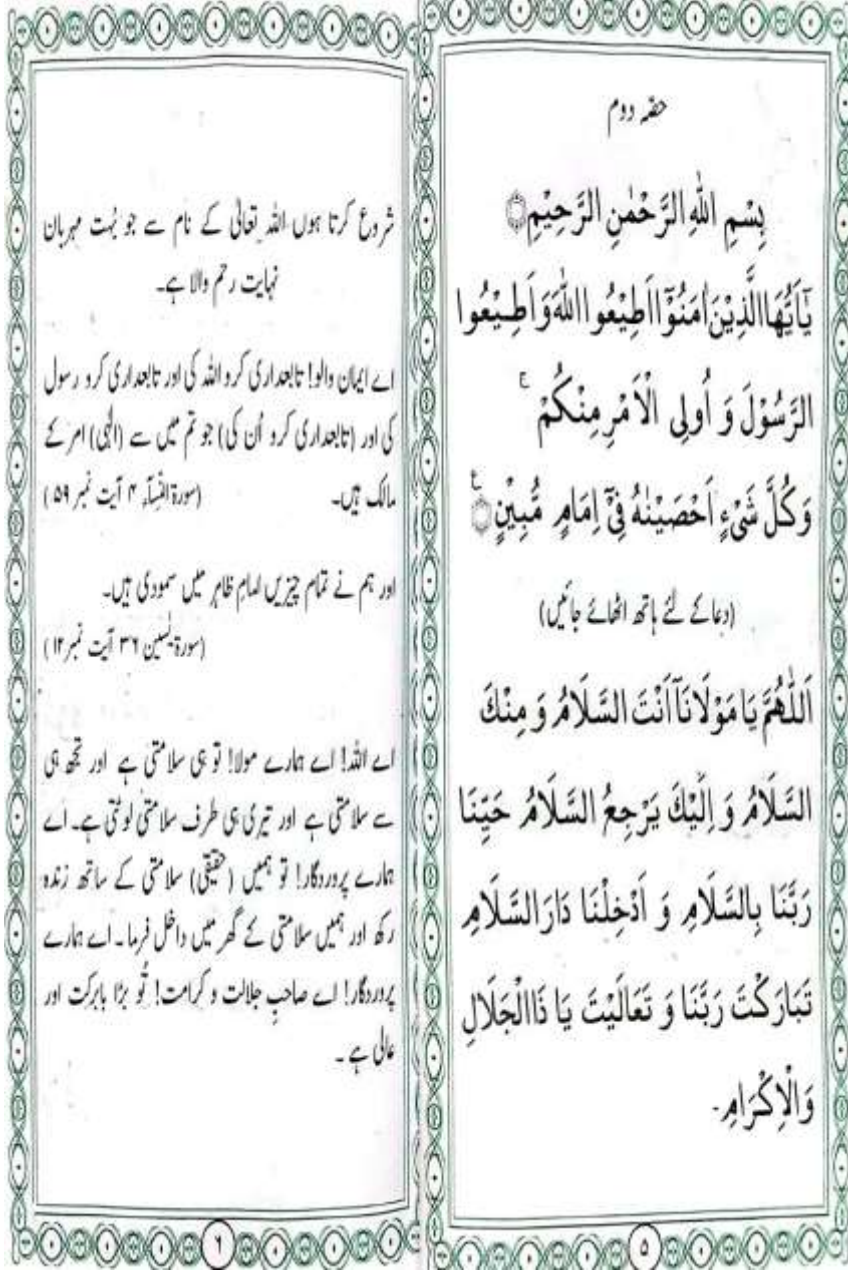 حصّہ دوم
بِسْمِ اللّٰهِ الرَّحْمٰنِ الرَّحِيْمِ
يٰٓاَيُّهَا الَّذِيْنَ اٰمَنُوْٓا اَطِيْعُوا اللّٰهَ وَ اَطِيْعُوا
الرَّسُوْلَ وَ اُولِی الْاَمْرِ مِنْكُمْ ۚ
وَ كُلَّ شَیْءٍ اَحْصَيْنٰهُ فِیْٓ اِمَامٍ مُّبِيْنٍ
(دعا کے لئے ہاتھ اٹھائے جائیں)
اَللّٰهُمَّ يَا مَوْلَانَآ اَنْتَ السَّلَامُ وَ مِنْكَ
السَّلَامُ وَ اِلَيْكَ يَرْجِعُ السَّلَامُ حَيِّنَا
رَبَّنَا بِالسَّلَامِ وَ اَدْخِلْنَا دَارَ السَّلَامِ
تَبَارَكْتَ رَبَّنَا وَ تَعَالَيْتَ يَا ذَاالْجَلَالِ
وَالْاِكْرَامِ۔
۵
شروع کرتا ہوں اللہ تعالیٰ کے نام سے جو بُہت مہربان
نہایت رحم والا ہے۔
اے ایمان والو! تابعداری کرو اللہ کی اور تابعداری کرو رسول
کی اور (تابعداری کرو اُن کی) جو تم میں سے (الٰہی) امر کے
مالک ہیں۔ (سورۃ النّسآء ۴ آیت نمبر ۵۹)
اور ہم نے تمام چیزیں امامِ ظاہر میں سمودی ہیں۔
(سورۃ یٰسین ۳۶ آیت نمبر ۱۲)
اے اللہ! اے ہمارے مولا! تو ہی سلامتی ہے اور تجھ ہی
سے سلامتی ہے اور تیری ہی طرف سلامتی لوٹتی ہے۔ اے
ہمارے پروردگار! تو ہمیں (حقیقی) سلامتی کے ساتھ زندہ
رکھ اور ہمیں سلامتی کے گھر میں داخل فرما۔ اے ہمارے
پروردگار! اے صاحبِ جلالت و کرامت! تُو بڑا بابرکت اور
عالی ہے۔
۶